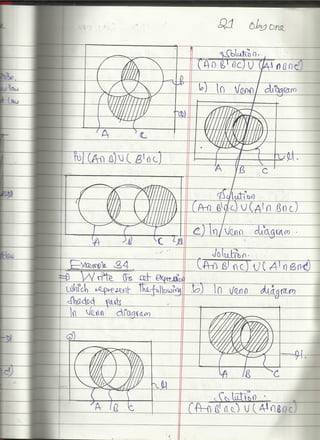 A C
iv) (A∩B)∪(B'∩C)
A B C
Example 34
=) Write the set Expression
which represent the following
shaded parts
In Venn diagram
a)
A B C
21
Solution.
(A∩B'∩C)∪(A'∩B∩C)
b) In Venn diagram
A B C
Solution
(A∩B'∩C)∪(A'∩B∩C)
c) In Venn diagram.
Solution.
(A∩B'∩C)∪(A'∩B∩C)
b) In Venn diagram
A B C
Solution.
(A∩B'∩C)∪(A'∩B∩C)